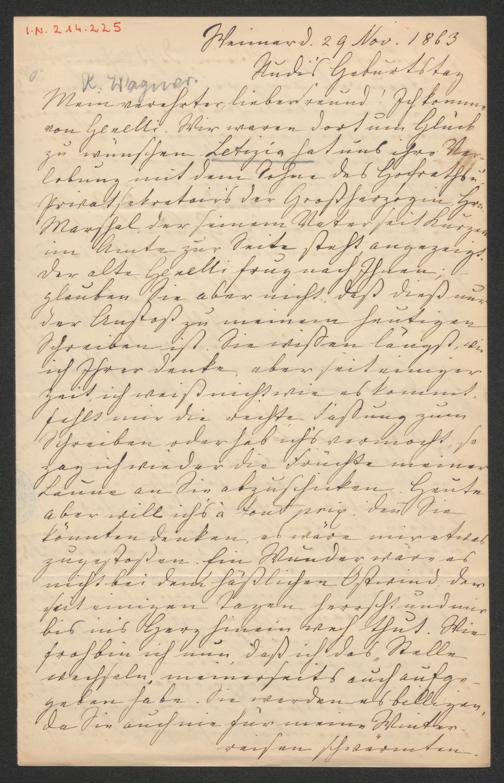 I.N. 214.225
Weimar d. 29 Nov. 1863
Rudis Geburtstag
R. Wagner.
Mein verehrter lieber Freund! Ich komme
von Genelli. Wir waren dort um Glück
zu wünschen. Letizia hat uns ihre Ver-
lobung mit dem Sohne des Hofraths u
Privatsekretairs der Großherzogin, Hrn.
Marschal der seinem Vater seit Kurzem
im Amte zur Seite steht angezeigt.
Der alte Genelli frug nach Ihnen,
glauben Sie aber nicht, daß dieß nur
der Anstoß zu meinem heutigen
Schreiben ist. Sie wißen längst, wie
ich Ihrer denke, aber seit einiger
Zeit ich weiß nicht wie es kommt,
fehlt mir die rechte Faßung zum
Schreiben oder hab ich's vermocht, so
zag ich wieder die Früchte meiner
Laune an Sie abzuschicken. Heute
aber will ich's à tout prix, denn Sie
könnten denken, es wäre mir etwas
zugestoßen. Ein Wunder wäre es
nicht bei dem häßlichen Ostwind, der
seit einigen Tagen herrscht und mir
bis ins Herz hinein weh thut. Wie
froh bin ich nun, daß ich das Stelle
wechseln, meinerseits auch aufge-
geben habe. Sie werden es billigen,
da Sie auch nie für meine Winter-
reisen schwärmten.